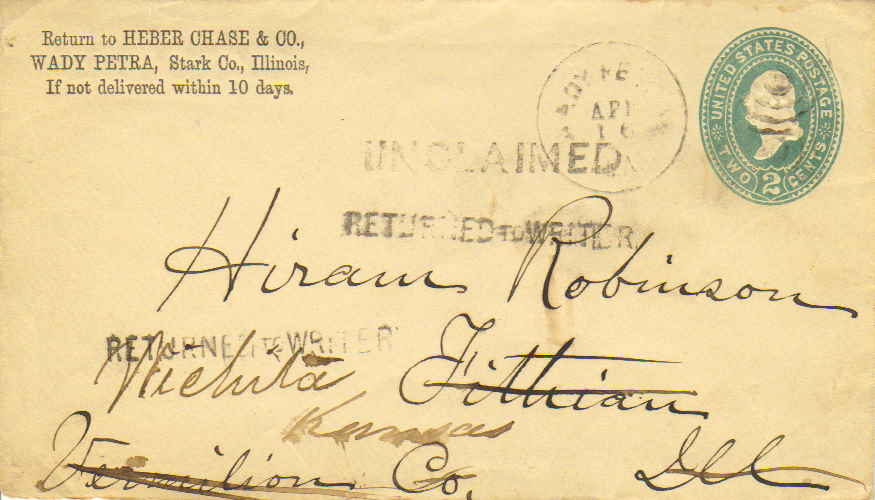 Return to HEBER CHASE & CO.,
WADY PETRA, Stark Co., Illinois,
If not delivered within 10 days.
UNITED STATES POSTAGE
TWO 2 CENTS
APR
16
UNCLAIMED
RETURNED TO WRITER
Hiram Robinson
RETURNED TO WRITER
Wichita Fithian
Kansas
Vermilion Co. Ill